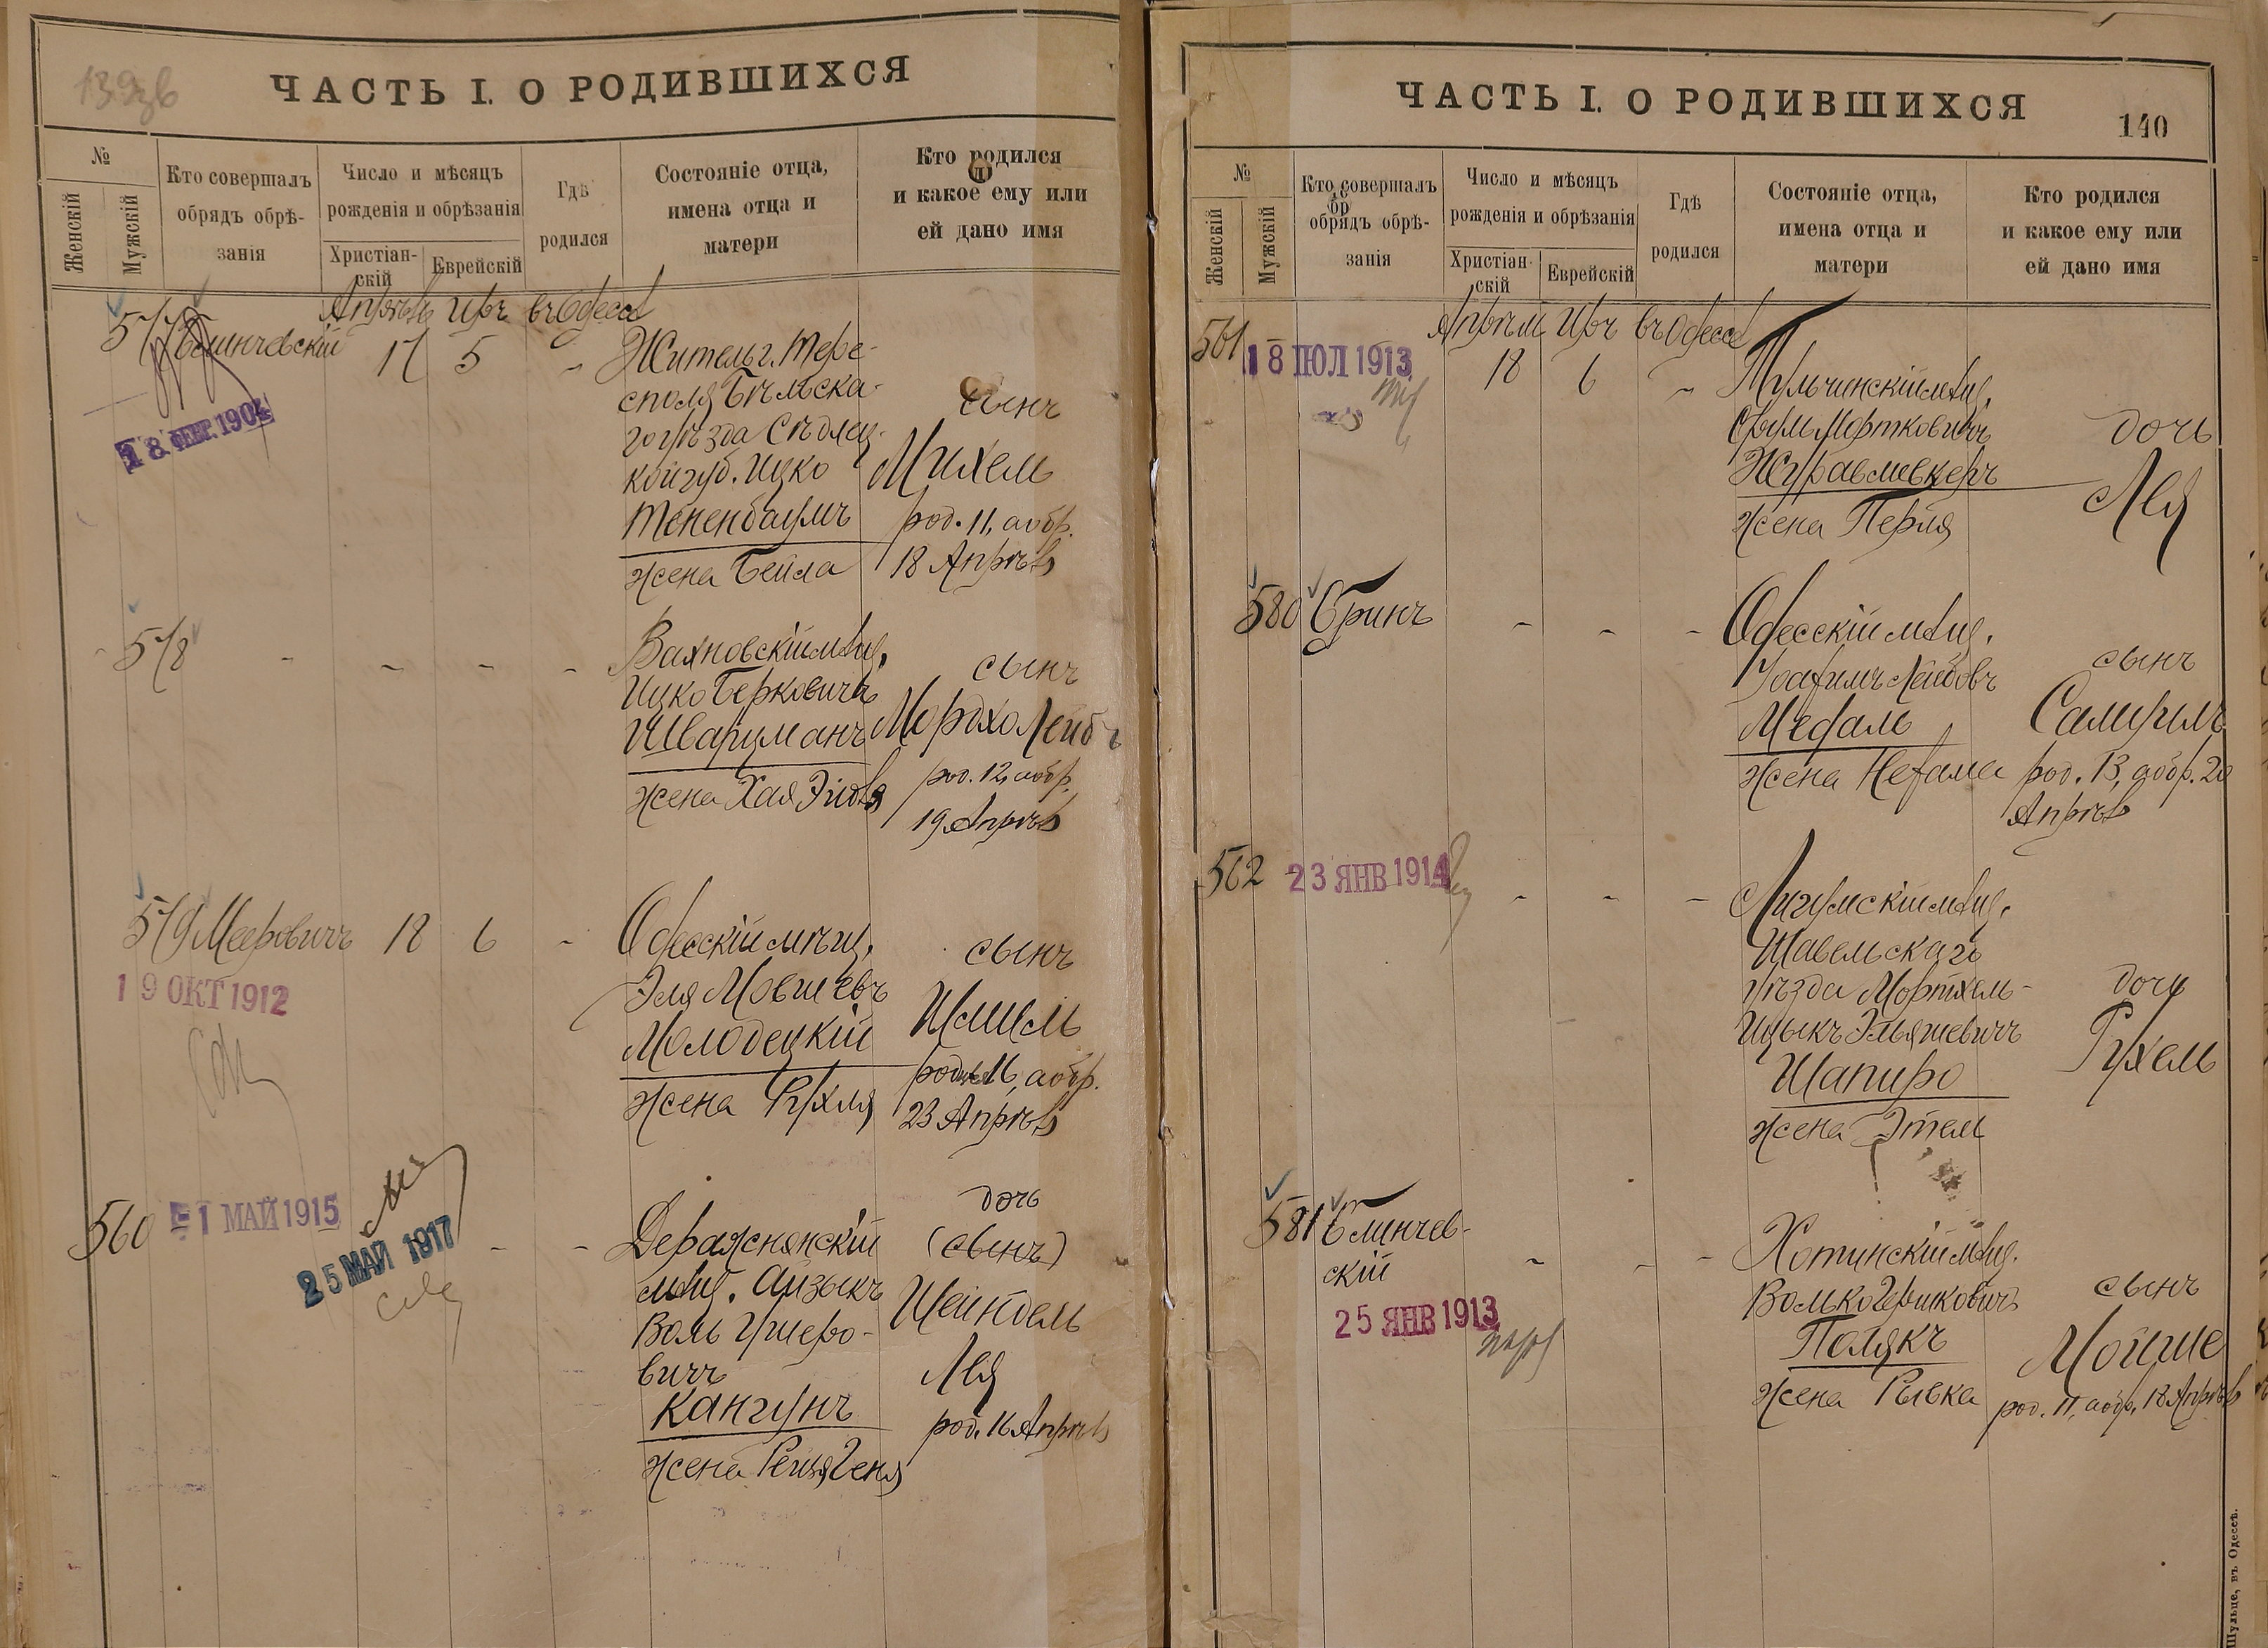 ЧАСТЬ I. О РОДИВШИХСЯ
№
Женскій
Мужскій
Кто совершалъ
обрядъ обрѣ-
занія
Число и мѣсяцъ
рожденія и обрѣзанія
Христіан-
скій
Еврейскій
Гдѣ
родился
Состояніе отца,
имена отца и
матери
Кто родился
и какое ему или
ей дано имя
Апрѣль Иръ въ Одессѣ
577 Блинчевскій 17 5 -
18 ФЕВР. 1904
Житель г. Тере-
споля Бѣльска-
го уѣзда Сѣдлец-
кой губ. Ицко
Тененбаумъ
жена Бейла
сынъ
Михель
род. 11, а обр.
18 Апрѣля
578 - - - -
Вахновскій мѣщ.
Ицко Берковичъ
Шварцманъ
жена Хая Эйдля
сынъ
Мордхо Лейбъ
род. 12, а обр.
19 Апрѣля
579 Мееровичъ 18 6 -
19 ОКТ 1912
Одесскій мѣщ.
Эля Мовшевъ
Молодецкій
жена Рухля
сынъ
род. 16, а обр.
23 Апрѣля
560 - -
1 МАЙ 1915
25 МАЙ 1917
Деражнянскій
мѣщ. Айзыкъ
Воль Ушеро-
вичъ
Кангунъ
жена
дочь
(сынъ)
Шейндель
Лея
род. 16 Апрѣля
ЧАСТЬ I. О РОДИВШИХСЯ
140
№
Женскій
Мужскій
Кто совершалъ
обрядъ обрѣ-
занія
Число и мѣсяцъ
рожденія и обрѣзанія
Христіан-
скій
Еврейскій
Гдѣ
родился
Состояніе отца,
имена отца и
матери
Кто родился
и какое ему или
ей дано имя
Апрѣль Иръ въ Одессѣ
561 18 6 -
18 ІЮЛ 1913
Тульчинскій мѣщ.
Сруль Мортковичъ
Журавлевкеръ
жена Перля
дочь
Лея
580 Гринъ - - -
Одесскій мѣщ.
Лейбовъ
Медаль
жена Нехама
сынъ
Самуилъ
род. 13, а обр. 20
Апрѣля
562 - - -
23 ЯНВ 1914
Лигумскій мѣщ.
Шавельскаго
уѣзда Мортхель-
Ицыкъ Эльяшевичъ
Шапиро
жена Этель
дочь
Рухель
581 Блинчев-
скій - - -
25 ЯНВ 1913
Хотинскій мѣщ.
Волько Гершковичъ
Полякъ
жена Рывка
сынъ
Мойше
род. 11, а обр. 18 Апрѣля
Шульце, въ Одессѣ.